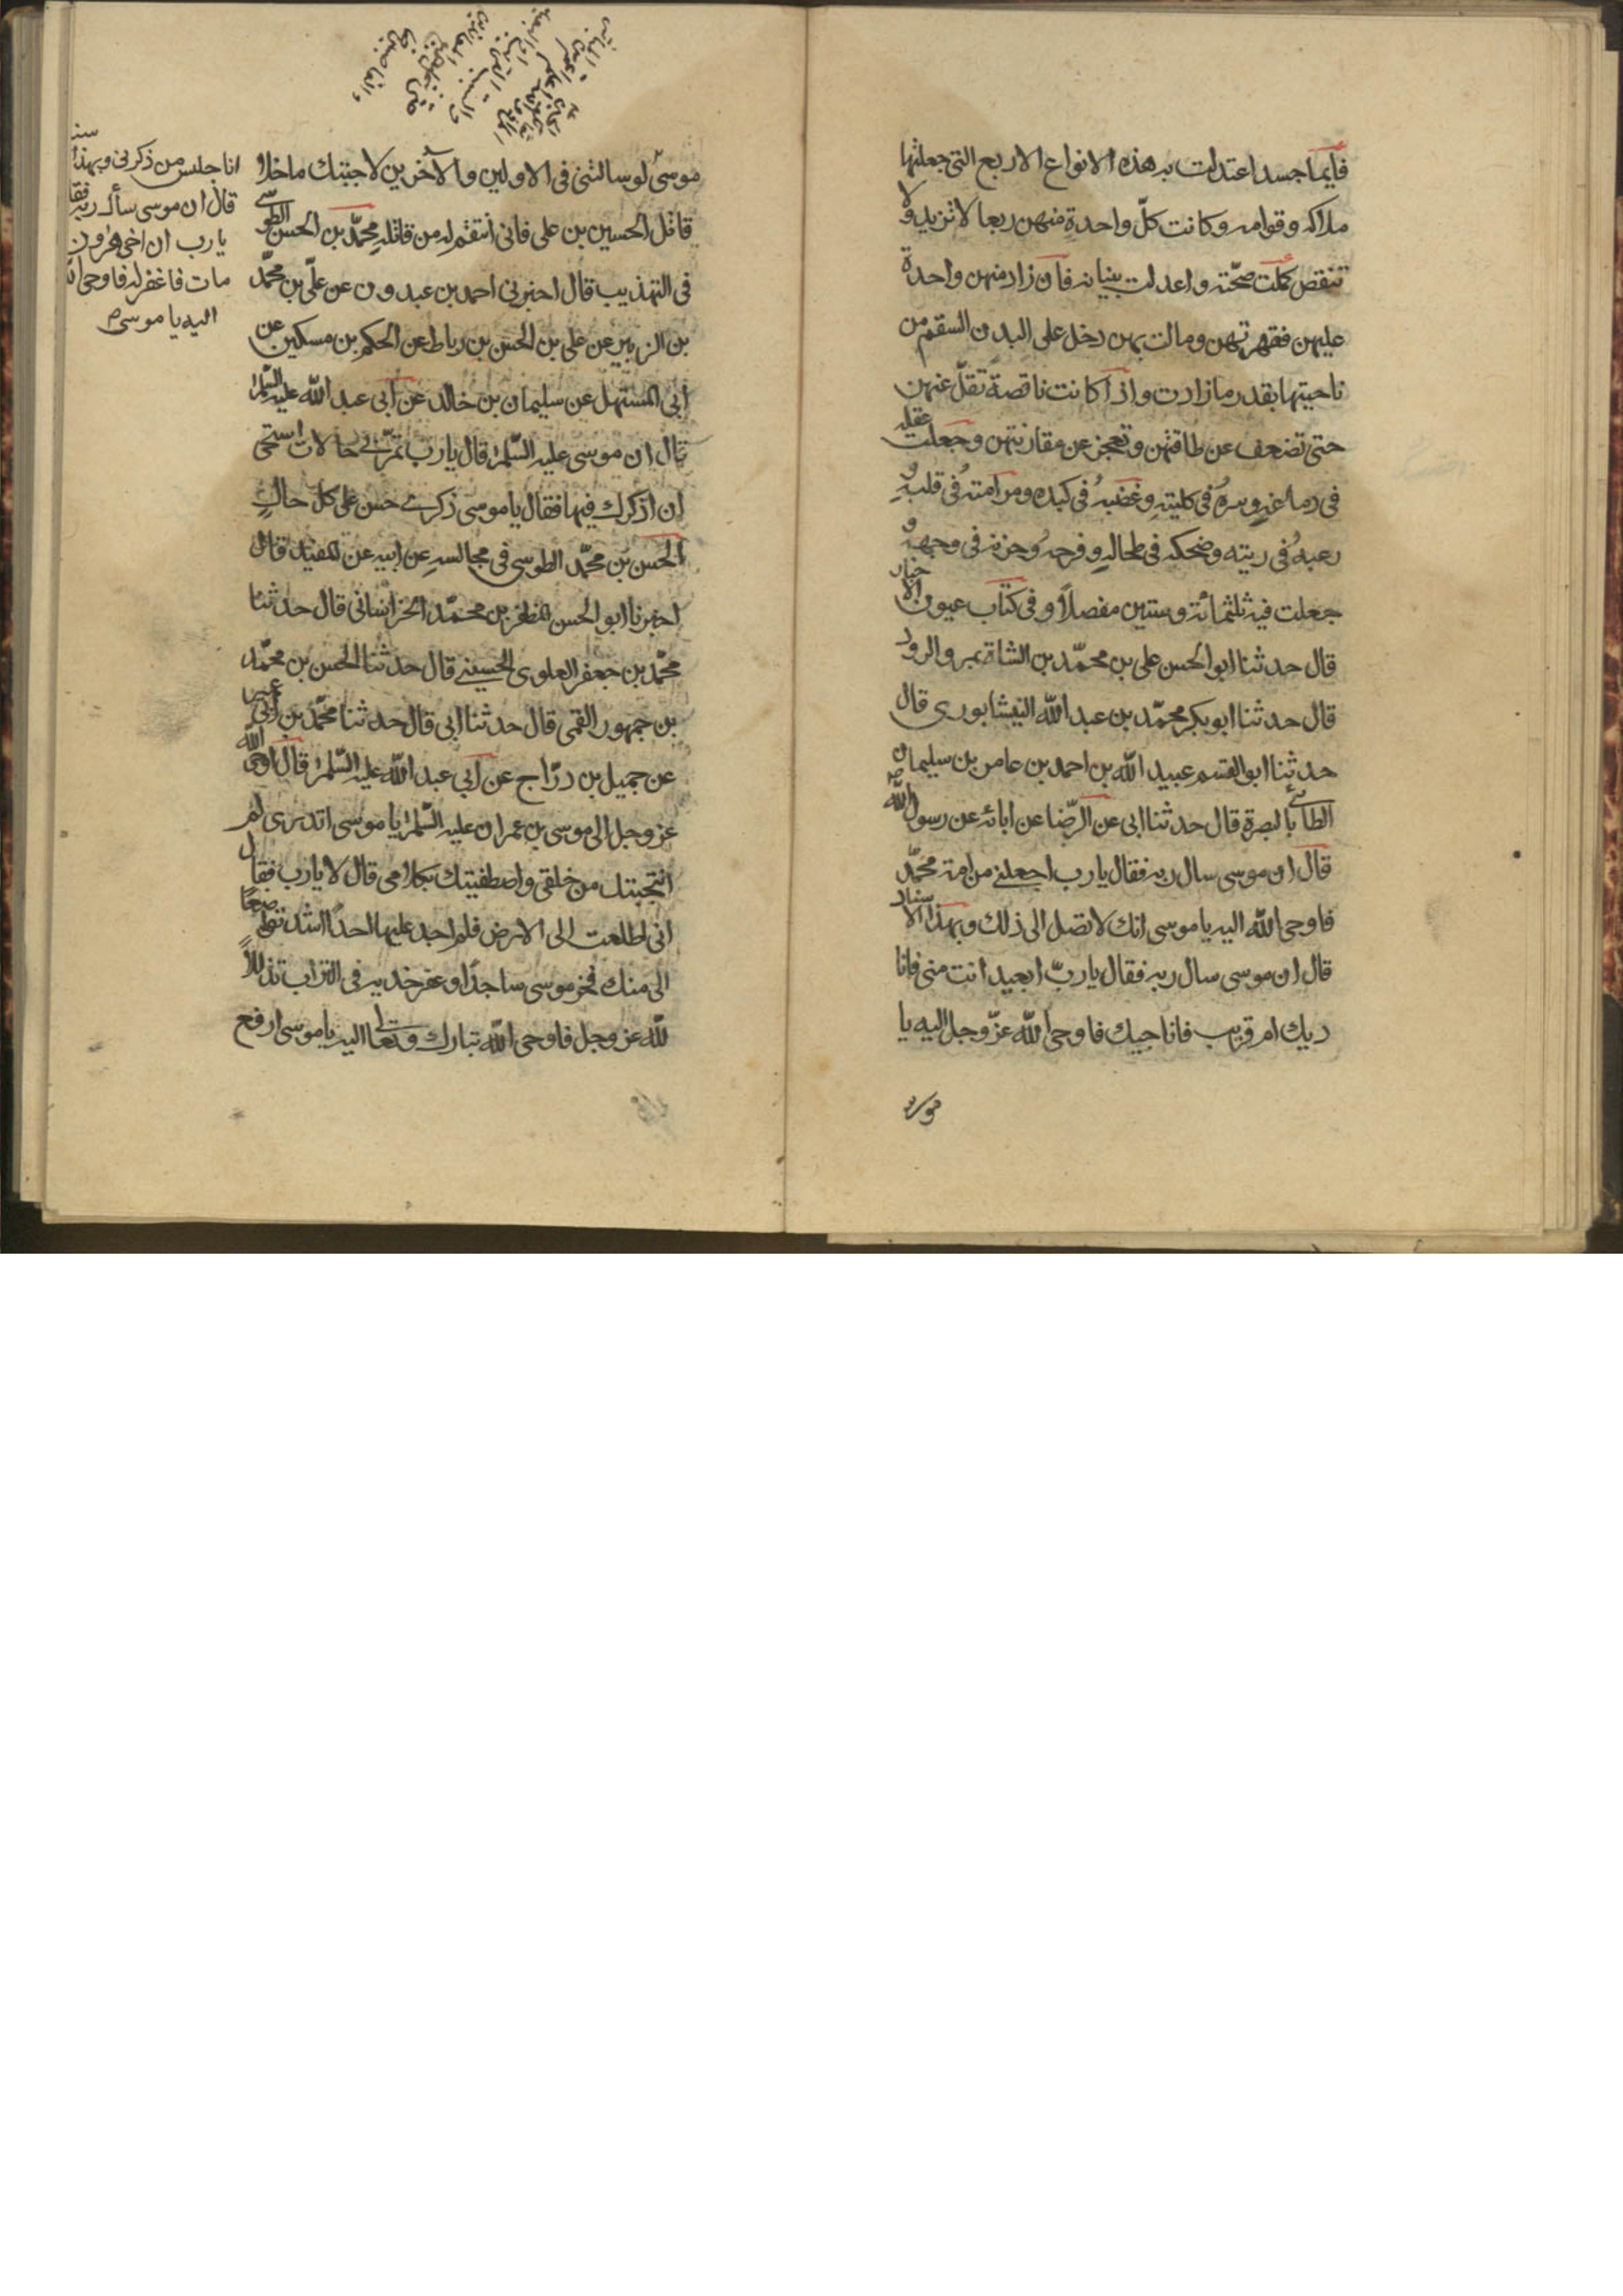 فايما جسد اعتدلت به هذه الانواع الاربع التي جعلتها
ملاكه وقوامه وكانت كلّ واحدة منهن ربعا لا تزيد ولا
تنقص كملت صحّته واعدلت بنيانه فان زاد منهن واحدة
عليهن فقهرتهن ومالت بهن دخل على البدن السقم من
ناحيتها بقدر ما زادت واذا كانت ناقصة تقلّ عنهن
حتى تضعف عن طاقتهن وتعجز عن مقارنتهن وجعلت عقله
في دماغه وسره في كليته وغضبه في كبده وصرامته في قلبه و
رعبه في ريته وضحكه في طحاله وفرحه وحزنه في وجهه و
جعلت فيه ثلثمائة وستين مفصلاً وفي كتاب عيون الاخبار
قال حدثنا ابو الحسن علي بن محمّد بن الشاة بمرو الرود
قال حدثنا ابو بكر محمّد بن عبد الله النيشابوري قال
حدثنا ابو القسم عبيد الله بن احمد بن عامر بن سليمان
الطائي بالبصرة قال حدثنا ابي عن الرّضا عن ابائه عن رسول الله ص
قال ان موسى سال ربه فقال يا رب اجعلني من امة محمّد
فاوحى الله اليه يا موسى انك لا تصل الى ذلك وبهذا الاسناد
قال ان موسى سال ربه فقال يا ربّ ابعيد انت مني فانا
ديك ام قريب فاناجيك فاوحى الله عزّ وجل اليه يا
موسى
موسى لو سالتني في الاولين والآخرين لاجبتك ما خلا
قاتل الحسين بن علي فاني انتقم له من قاتله محمّد بن الحسن الطوسي
في التهذيب قال اخبرني احمد بن عبدون عن علي بن محمّد
بن الزبير عن علي بن الحسن بن رباط عن الحكم بن مسكين عن
ابي المستهل عن سليمان بن خالد عن ابي عبد الله عليه السّلم
قال ان موسى عليه السّلم قال يا رب تمرّ بي حالات استحى
ان اذكرك فيها فقال يا موسى ذكري حسن على كل حال
الحسن بن محمّد الطوسي في مجالسه عن ابيه عن المفيد قال
اخبرنا ابو الحسن المظفر بن محمّد الخراساني قال حدثنا
محمّد بن جعفر العلوي الحسيني قال حدثنا الحسن بن محمّد
بن جمهور القمي قال حدثنا ابي قال حدثنا محمّد بن ابي عمير
عن جميل بن درّاج عن ابي عبد الله عليه السّلم قال اوحى الله
عز وجل الى موسى بن عمران عليه السّلم يا موسى اتدري لم
انتجبتك من خلقي واصطفيتك بكلامي قال لا يا رب فقال
اني اطلعت الى الارض فلم اجد عليها احدًا اشد تواضعًا
الى منك فخر موسى ساجدًا وعفر خديه في التراب تذللاً
لله عز وجل فاوحى الله تبارك وتعالى اليه يا موسى ارفع
انا جليس من ذكرني وبهذا
قال ان موسى سأل ربه فقا
يا رب ان اخي هرون
مات فاغفر له فاوحى الله
اليه يا موسى م